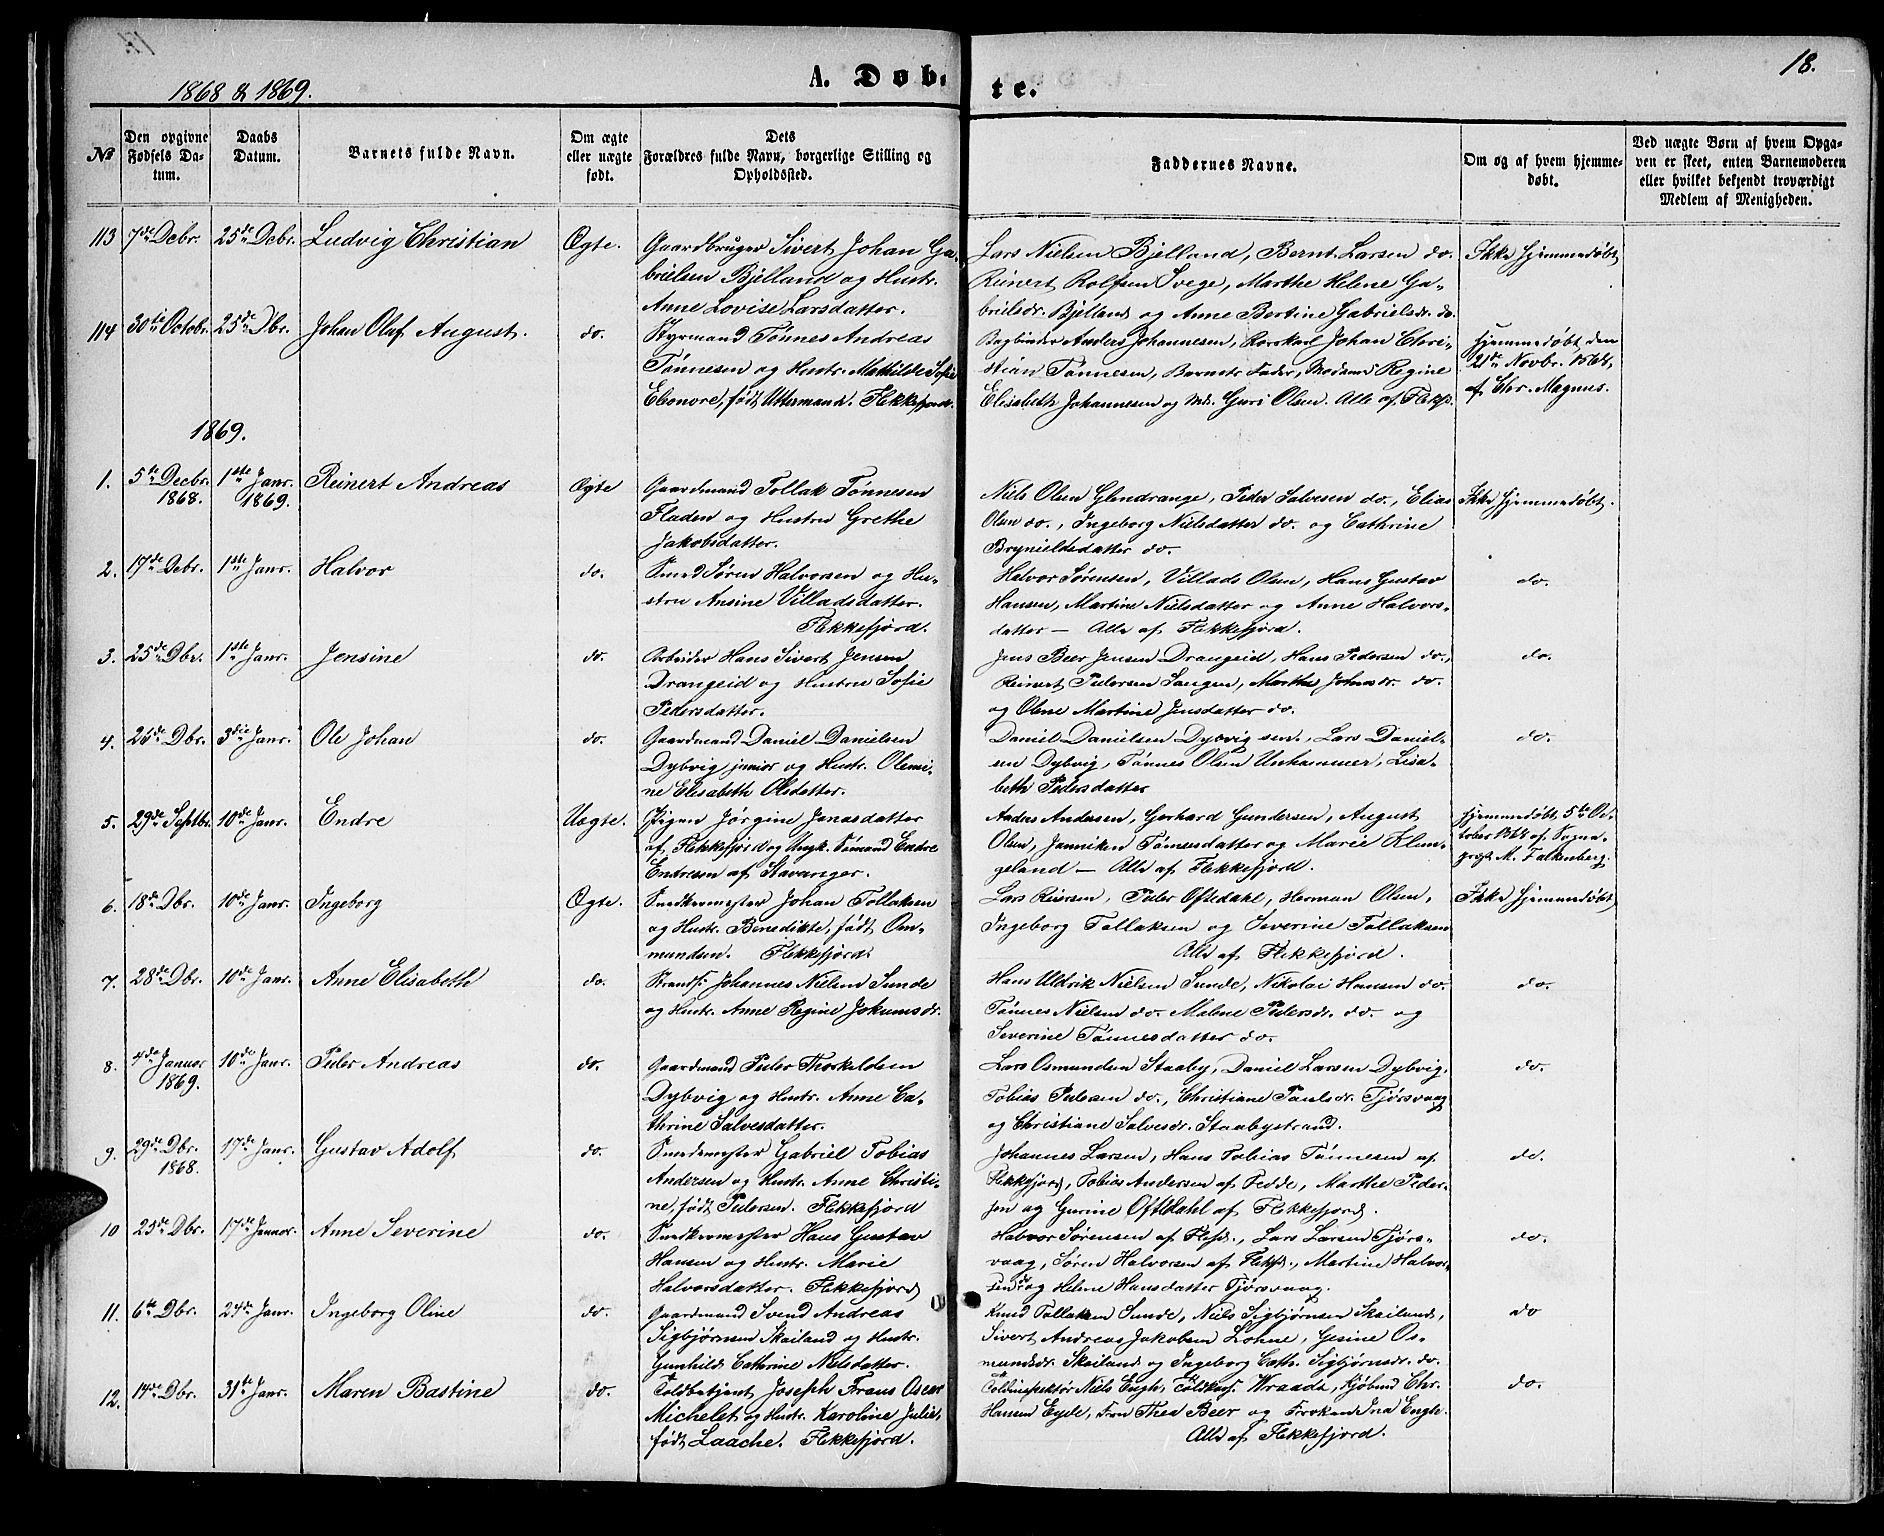 1868 & 1869.
A. Døb-
te.
18.
№
Den opgivne Fødsels Datum.
Daabs Datum.
Barnets fulde Navn.
Om ægte eller uægte født.
Dets Forældres fulde Navn, borgerlige Stilling og Opholdssted.
Faddernes Navne.
Om og af hvem hjemmedøbt.
Ved uægte Børn af hvem Opgaven er skeet, enten Barnemoderen eller hvilket bekjendt troværdigt Medlem af Menigheden.
113 7de Debr. 25de Debr. Ludvig Christian Ægte.
Gaardbruger Sivert Johan Ga-
brielsen Bjelland og Hustr.
Anne Lovise Larsdatter.
Lars Nielsen Bjelland, Bernt Larsen do.
Reinert Rolfsen Svege, Marthe Helene Ga-
brielsdr. Bjelland og Anne Bertine Gabrielsdr. do.
Ikke hjemmedøbt
114 30te Octobr. 25de Dbr. Johan Oluf August. do.
Styrmand Tønnes Andreas
Tønnesen og Hustr. Mathilde Sofie
Elenore, født Uttermand. Flekkefjord.
Bogbinder Anders Johannesen, Johan Chri-
stian Tønnesen, Barnets Fader, Madame Regine
Elisabeth Johannesen og Md. Guri Olsen. Alle af Flekf.
Hjemmedøbt den
21de Novbr. 1868,
af Chr. Magnus.
1869.
1. 5te Decbr. 1868. 1ste Janr. 1869. Reinert Andreas Ægte
Gaardmand Tollak Tønnesen
Fladen og Hustru Grethe
Jakobsdatter.
Niels Olsen Glendrange, Peder Salvesen do., Elias
Olsen do., Ingeborg Nielsdatter do. og Cathrine
Brynieldsdatter do.
Ikke hjemmedøbt.
2. 17de Debr. 1ste Janr. Halvor do.
Smed Søren Halvorsen og Hu-
stru Ansine Villadsdatter.
Flekkefjord.
Halvor Sørensen, Villads Olsen, Hans Gustav
Hansen, Martine Nielsdatter og Anne Halvors-
datter — Alle af Flekkefjord.
do.
3. 25de Dbr. 1ste Janr. Jensine do.
Arbeider Hans Sivert Jensen
Drangeid og Hustru Sofie
Pedersdatter.
Jens Beer Jensen Drangeid, Hans Pedersen do.,
Reinert Pedersen Langen, Marthe Johnsdr. do.
og Olene Martine Jensdatter do.
do.
4. 25de Dbr. 3die Janr. Ole Johan do.
Gaardmand Daniel Danielsen
Dybvig junior og Hustr. Olemi-
ne Elisabeth Olsdatter.
Daniel Danielsen Dybvig sen., Lars Daniel-
sen Dybvig, Tønnes Olsen Unhammer, Lisa-
beth Pedersdatter
do.
5. 29de Septbr. 10de Janr. Endre Uægte.
Pigen Jørgine Jonasdatter
af Flekkefjord og Ungk. Sømand Endre
Endresen af Stavanger.
Anders Andersen, Gerhard Gundersen, August
Olsen, Janniken Tønnesdatter og Marie Klun-
geland — Alle af Flekkefjord.
Hjemmedøbt 5te Oc-
tober 1868 af Sogne-
præst M. Falkenberg.
6. 18de Dbr. 10de Janr. Ingeborg Ægte.
Snedkermester Johan Tollaksen
og Hustr. Benedikte, født Om-
mundsen. Flekkefjord.
Lars Reiersen, Peder Oftedahl, Herman Olsen,
Ingeborg Tollaksen og Severine Tollaksen
Alle af Flekkefjord.
Ikke hjemmedøbt
7. 28de Dbr. 10de Janr. Anne Elisabeth do.
Strands. Johannes Nielsen Sunde
og Hustr. Anne Regine Jokumsdr.
Hans Uldrik Nielsen Sunde, Nikolai Hansen do.
Tønnes Nielsen do. Malene Pedersdr. do. og
Severine Tønnesdatter do.
do.
8. 4de Januar 1869. 10de Janr. Peder Andreas do.
Gaardmand Peder Thorkeldsen
Dybvig og Hustr. Anne Ca-
thrine Salvesdatter.
Lars Osmundsen Staaby, Daniel Larsen Dybvig,
Tobias Pedersen do., Christiane Paulsdr. Tjørsvaag
og Christiane Salvesdr. Staabystrand.
do.
9. 29de Dbr. 1868. 17de Janr. Gustav Adolf do.
Smedemester Gabriel Tobias
Andersen og Hustr. Anne Christi-
ne, født Pedersen. Flekkefjord
Johannes Larsen, Hans Tobias Tønnesen af
Flekkefjord, Tobias Andersen af Fedde, Marthe Peder-
sen og Gurine Oftedahl af Flekkefjord.
do.
10 25de Dbr. 17de Januar. Anne Severine do.
Snedkermester Hans Gustav
Hansen og Hustr. Marie
Halvorsdatter. Flekkefjord
Halvor Sørensen af Flefd., Lars Larsen Tjørs-
vaag, Søren Halvorsen af Flekfd., Martine Halvor-
sen do og Helene Hansdatter Tjørsvaag.
do.
11. 6te Dbr. 24de Janr. Ingeborg Oline do.
Gaardmand Svend Andreas
Sigbjørnsen Skailand og Hustr.
Gunhild Cathrine Nielsdatter.
Knud Tollaksen Sunde, Niels Sigbjørnsen Skailand,
Sivert Andreas Jakobsen Lohne, Gesine Os-
mundsdr. Skailand og Ingeborg Cath. Sigbjørnsdr. do.
do
12. 14de Dbr. 31te Janr. Maren Bastine do.
Toldbetjent Joseph Frans Oscar
Michelet og Hustr. Karoline Julie,
født Laache. Flekkefjord.
Toldinspektør Niels Engh, Toldkas. Wraadt, Kjøbmd Chr.
Hansen Eyde, Fru Thea Beer og Frøken Ina Engh.
Alle af Flekkefjord.
do.